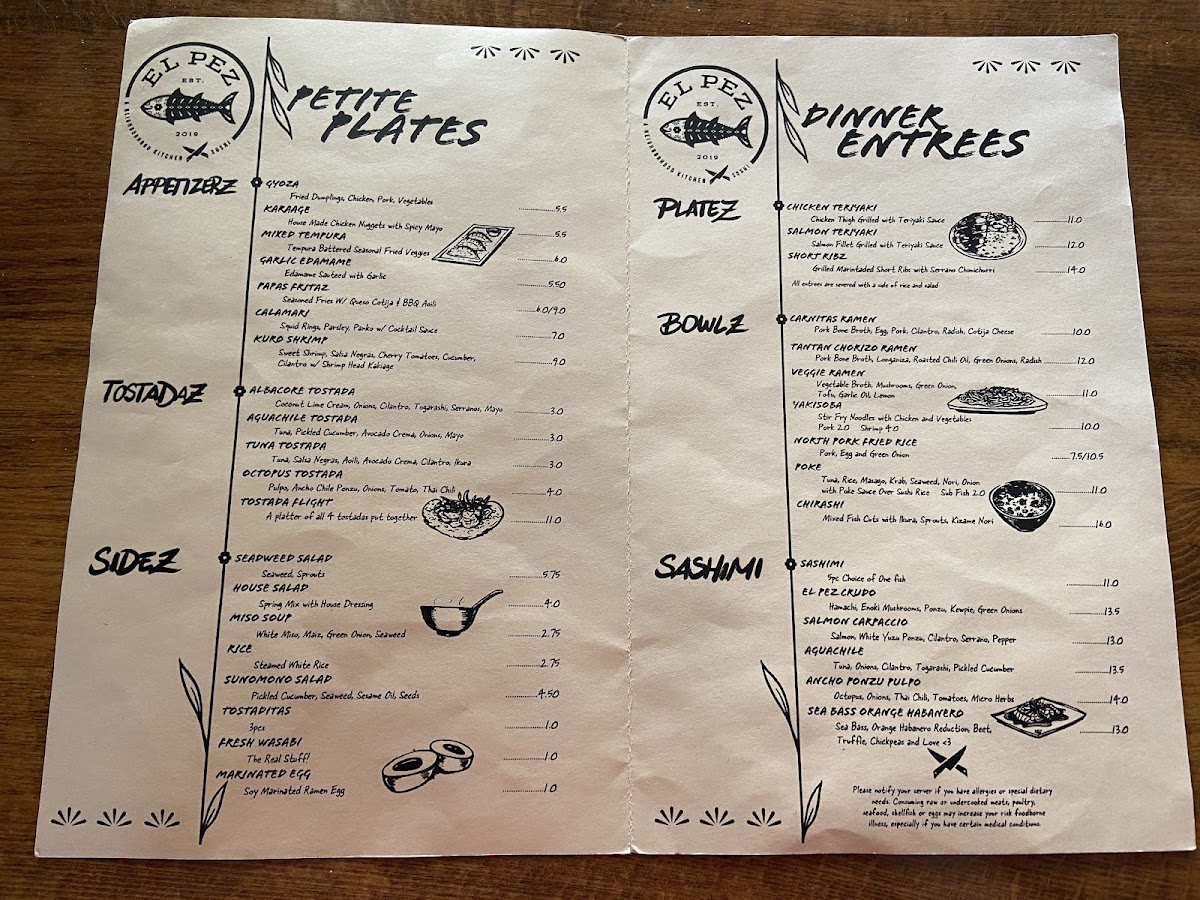 EL PEZ
EST.
2019
A NEIGHBORHOOD KITCHEN SUSHI
PETITE
PLATES
APPETIZERZ
GYOZA
Fried Dumplings, Chicken, Pork, Vegetables
5.5
KARAAGE
House Made Chicken Nuggets with Spicy Mayo
5.5
MIXED TEMPURA
Tempura Battered Seasonal Fried Veggies
6.0
GARLIC EDAMAME
Edamame Sauteed with Garlic
5.50
PAPAS FRITAZ
Seasoned Fries W/ Queso Cotija & BBQ Aoili
6.0/9.0
CALAMARI
Squid Rings, Parsley, Panko w/ Cocktail Sauce
7.0
KURO SHRIMP
Sweet Shrimp, Salsa Negras, Cherry Tomatoes, Cucumber,
Cilantro w/ Shrimp Head Kakiage
9.0
TOSTADAZ
ALBACORE TOSTADA
Coconut Lime Cream, Onions, Cilantro, Togarashi, Serranos, Mayo
3.0
AGUACHILE TOSTADA
Tuna, Pickled Cucumber, Avocado Crema, Onions, Mayo
3.0
TUNA TOSTADA
Tuna, Salsa Negras, Aoili, Avocado Crema, Cilantro, Ikura
3.0
OCTOPUS TOSTADA
Pulpo, Ancho Chile Ponzu, Onions, Tomato, Thai Chili
4.0
TOSTADA FLIGHT
A platter of all 4 tostadas put together
11.0
SIDEZ
SEADWEED SALAD
Seaweed, Sprouts
5.75
HOUSE SALAD
Spring Mix with House Dressing
4.0
MISO SOUP
White Miso, Maiz, Green Onion, Seaweed
2.75
RICE
Steamed White Rice
2.75
SUNOMONO SALAD
Pickled Cucumber, Seaweed, Sesame Oil, Seeds
4.50
TOSTADITAS
3pcs
1.0
FRESH WASABI
The Real Stuff!
1.0
MARINATED EGG
Soy Marinated Ramen Egg
1.0
EL PEZ
EST.
2019
A NEIGHBORHOOD KITCHEN SUSHI
DINNER
ENTREES
PLATEZ
CHICKEN TERIYAKI
Chicken Thigh Grilled with Teriyaki Sauce
11.0
SALMON TERIYAKI
Salmon Fillet Grilled with Teriyaki Sauce
12.0
SHORT RIBZ
Grilled Marintaded Short Ribs with Serrano Chimichurri
14.0
All entrees are severed with a side of rice and salad
BOWLZ
CARNITAS RAMEN
Pork Bone Broth, Egg, Pork, Cilantro, Radish, Cotija Cheese
10.0
TANTAN CHORIZO RAMEN
Pork Bone Broth, Longaniza, Roasted Chili Oil, Green Onions, Radish
12.0
VEGGIE RAMEN
Vegetable Broth, Mushrooms, Green Onion,
Tofu, Garlic Oil, Lemon
11.0
YAKISOBA
Stir Fry Noodles with Chicken and Vegetables
Pork 2.0 Shrimp 4.0
10.0
NORTH PORK FRIED RICE
Pork, Egg and Green Onion
7.5/10.5
POKE
Tuna, Rice, Masago, Krab, Seaweed, Nori, Onion
with Poke Sauce Over Sushi Rice Sub Fish 2.0
11.0
CHIRASHI
Mixed Fish Cuts with Ikura, Sprouts, Kizame Nori
16.0
SASHIMI
SASHIMI
5pc Choice of One fish
11.0
EL PEZ CRUDO
Hamachi, Enoki Mushrooms, Ponzu, Kewpie, Green Onions
13.5
SALMON CARPACCIO
Salmon, White Yuzu Ponzu, Cilantro, Serrano, Pepper
13.0
AGUACHILE
Tuna, Onions, Cilantro, Togarashi, Pickled Cucumber
13.5
ANCHO PONZU PULPO
Octopus, Onions, Thai Chili, Tomatoes, Micro Herbs
14.0
SEA BASS ORANGE HABANERO
Sea Bass, Orange Habanero Reduction, Beet,
Truffle, Chickpeas and Love <3
13.0
Please notify your server if you have allergies or special dietary
needs. Consuming raw or undercooked meats, poultry,
seafood, shellfish or eggs may increase your risk foodborne
illness, especially if you have certain medical conditions.